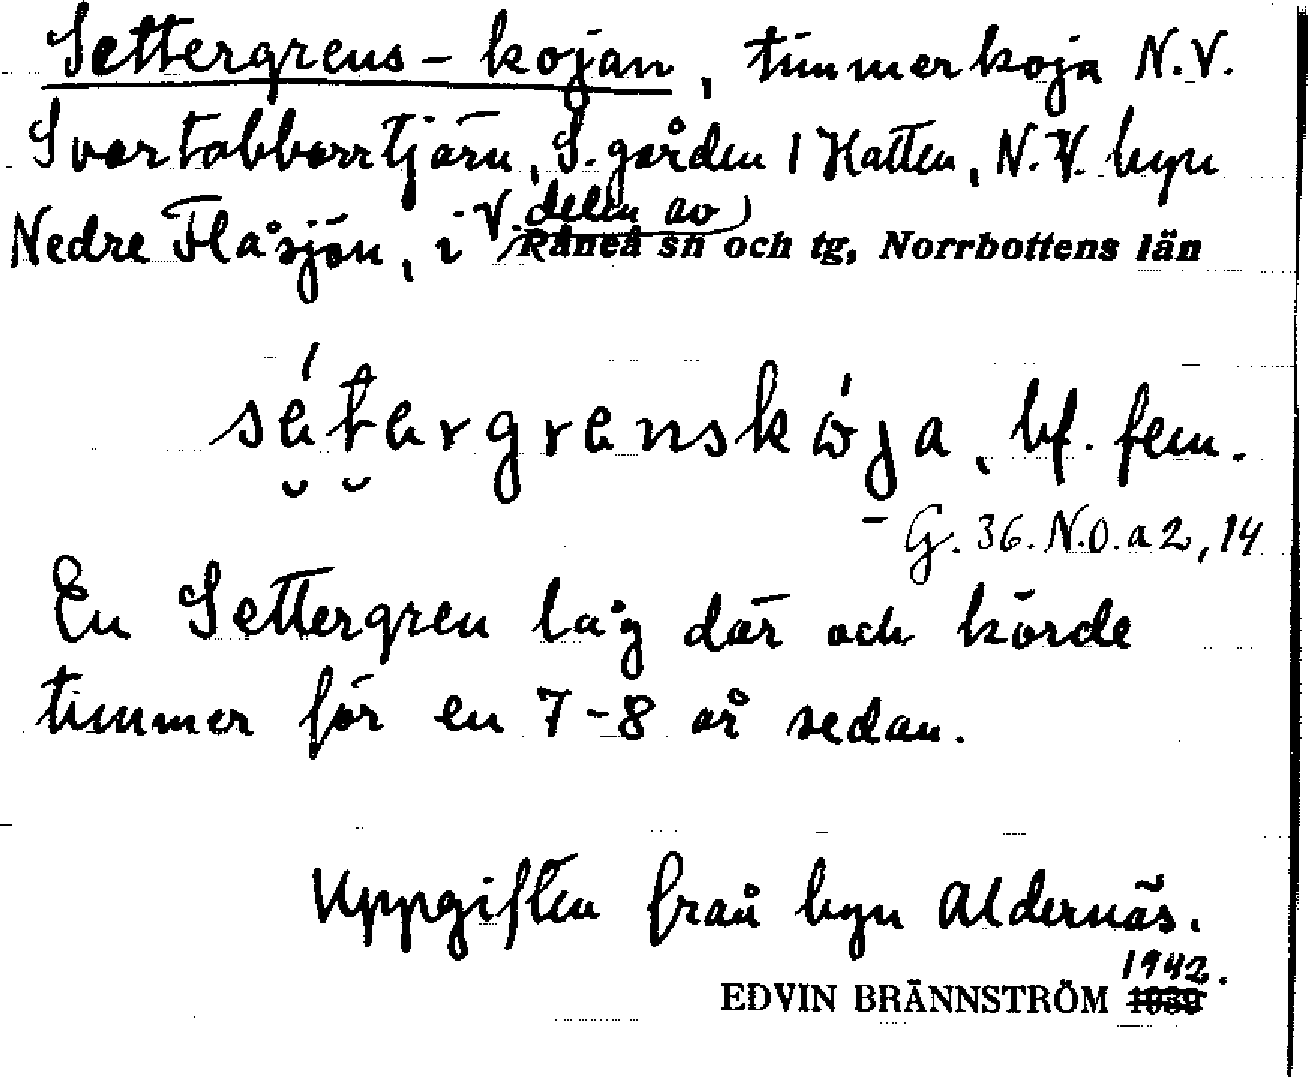 Settergrens-kojan, timmerkoja N.V.
Svartabborrtjärn, S. gården 1 Hatten, N.V. byn
Nedre Flåsjön, i V. delen av Råneå sn och tg, Norrbottens län
sétergrenskòja, bf. fem.
- G. 36. N.O. a 2, 14
En Settergren låg där och körde
timmer för en 7-8 år sedan.
Uppgiften från byn Aldernäs.
EDVIN BRÄNNSTRÖM 1942.